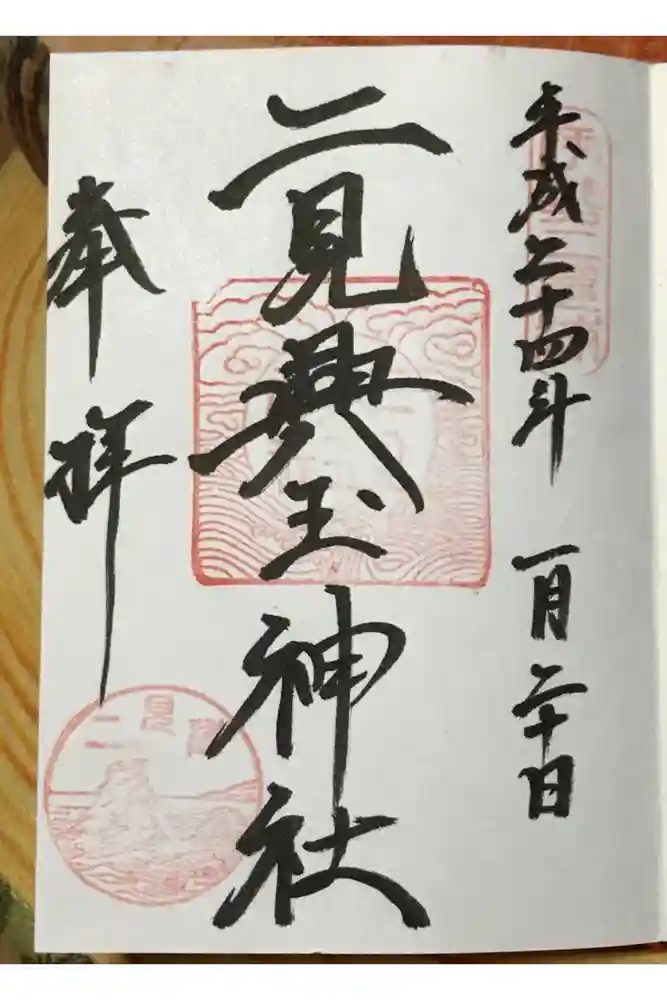 平成二十四年 一月二十日
二見興玉神社
奉拝
二見